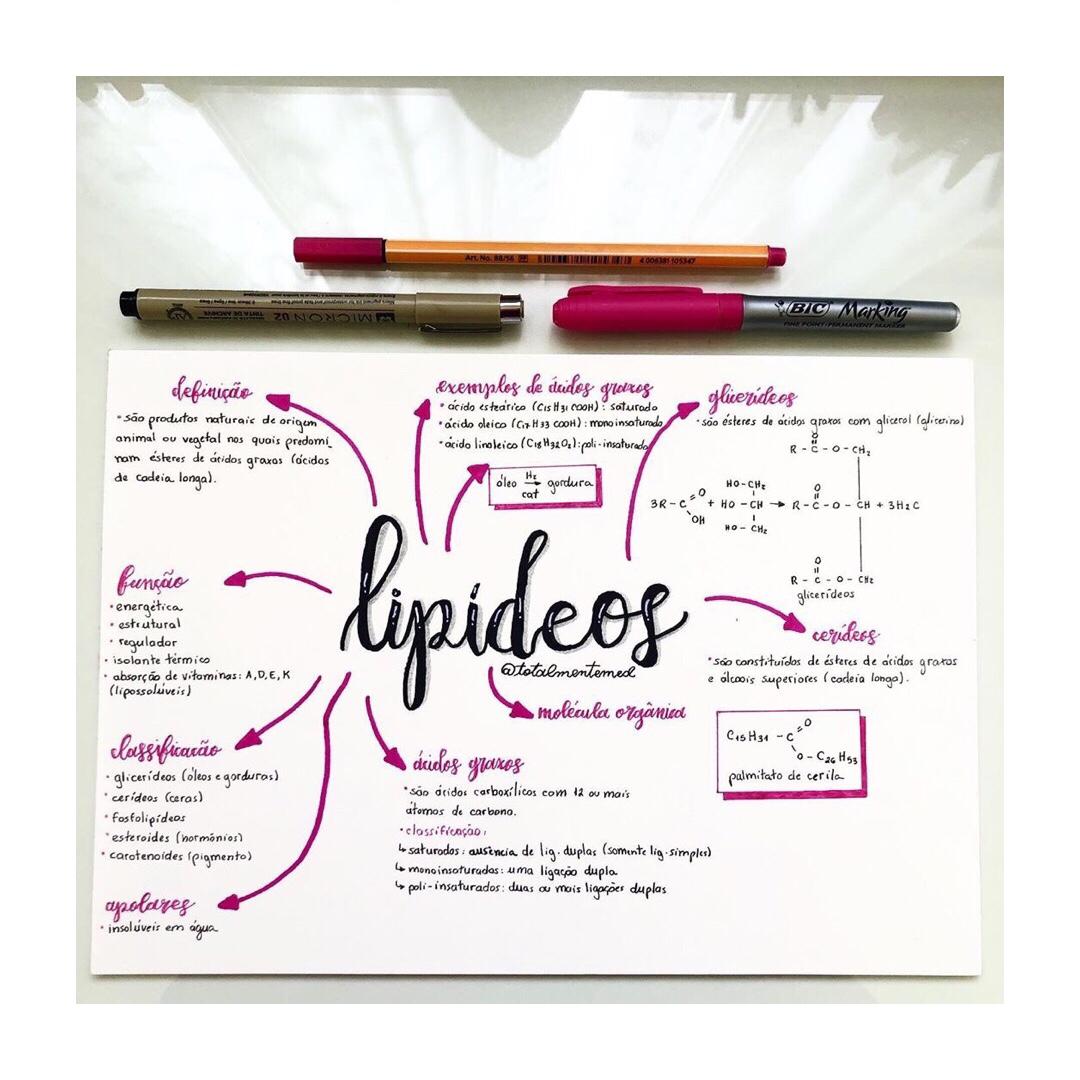 Art. No. 88/56
4 006381 105347
MICRON 02
TINTA DE ARCHIVE
BIC Marking
FINE POINT · PERMANENT MARKER
definição
• são produtos naturais de origem
animal ou vegetal nos quais predomi
nam ésteres de ácidos graxos (ácidos
de cadeia longa).
exemplos de ácidos graxos
• ácido esteárico (C15 H31 COOH) : saturado
• ácido oleico (C17 H33 COOH) : monoinsaturado
• ácido linoleico (C18H32O2) : poli-insaturado
óleo H2 → cat gordura
glicerídeos
• são ésteres de ácidos graxos com glicerol (glicerina)
O
R - C - O - CH2
HO - CH2
3R - C = O OH + HO - CH → R - C - O - CH + 3H2C
O
HO - CH2
O
R - C - O - CH2
glicerídeos
função
• energética
• estrutural
• regulador
• isolante térmico
• absorção de vitaminas: A, D, E, K
(lipossolúveis)
lipídeos
@totalmentemed
cerídeos
• são constituídos de ésteres de ácidos graxos
e álcoois superiores (cadeia longa).
molécula orgânica
C15H31 - C = O
O - C26H53
palmitato de cerila
classificação
• glicerídeos (óleos e gorduras)
• cerídeos (ceras)
• fosfolipídeos
• esteroides (hormônios)
• carotenoides (pigmento)
ácidos graxos
• são ácidos carboxílicos com 12 ou mais
átomos de carbono.
• classificação:
↳ saturados: ausência de lig. duplas (somente lig. simples)
↳ monoinsaturados: uma ligação dupla
↳ poli-insaturados: duas ou mais ligações duplas
apolares
• insolúveis em água